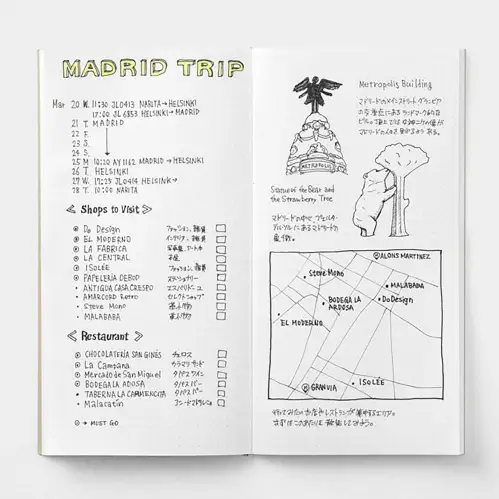 MADRID TRIP
Mar 20 W. 11:30 JL0413 NARITA→HELSINKI
17:00 JL6853 HELSINKI→MADRID
21 T. MADRID
22 F.
23 S.
24 S.
25 M 10:20 AY1162 MADRID→HELSINKI
26 T. HELSINKI
27 W. 17:25 JL0414 HELSINKI→
28 T. 10:00 NARITA
≪ Shops to Visit ≫
◎ Do Design ファッション, 雑貨
◎ EL MODERNO インテリア, 雑貨
◎ LA FABRICA
◎ LA CENTRAL 本屋
◎ ISOLÉE ファッション, 雑貨
◎ PAPELERÍA DEBOD ステーショナリー
• ANTIGUA CASA CRESPO エスパドリーユ
• AMARCORD Retro セレクトショップ
• Steve Mono 革小物
• MALABABA 革小物
≪ Restaurant ≫
◎ CHOCOLATERÍA SAN GINÉS チュロス
◎ La Campana カラマリサンド
◎ Mercado de San Miguel タパス
◎ BODEGA LA ADOSA タパス バー
• TABERNA LA CARMENCITA タパス バー
• Malacatín
◎ → MUST GO
Metropolis Building
マドリードのメインストリート, グランビア
METROPOLIS
Statue of the Bear and
the Strawberry Tree
マドリードの中心 プエルタ・
デル・ソルにあるマドリードの
ALONS MARTINEZ
Steve Mono
MALABABA
BODEGA LA
ARDOSA
Do Design
EL MODERNO
ISOLÉE
GRANVIA